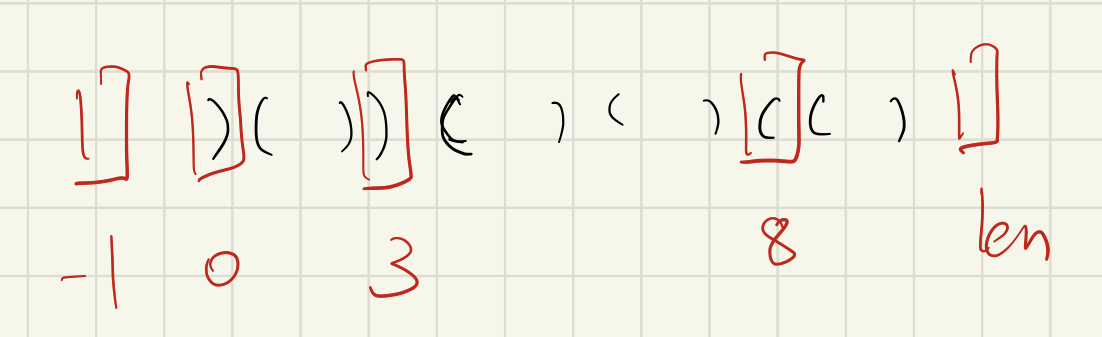 ) ( ) ) ( ) ( ) ( ( )
-1 0 3 8 len